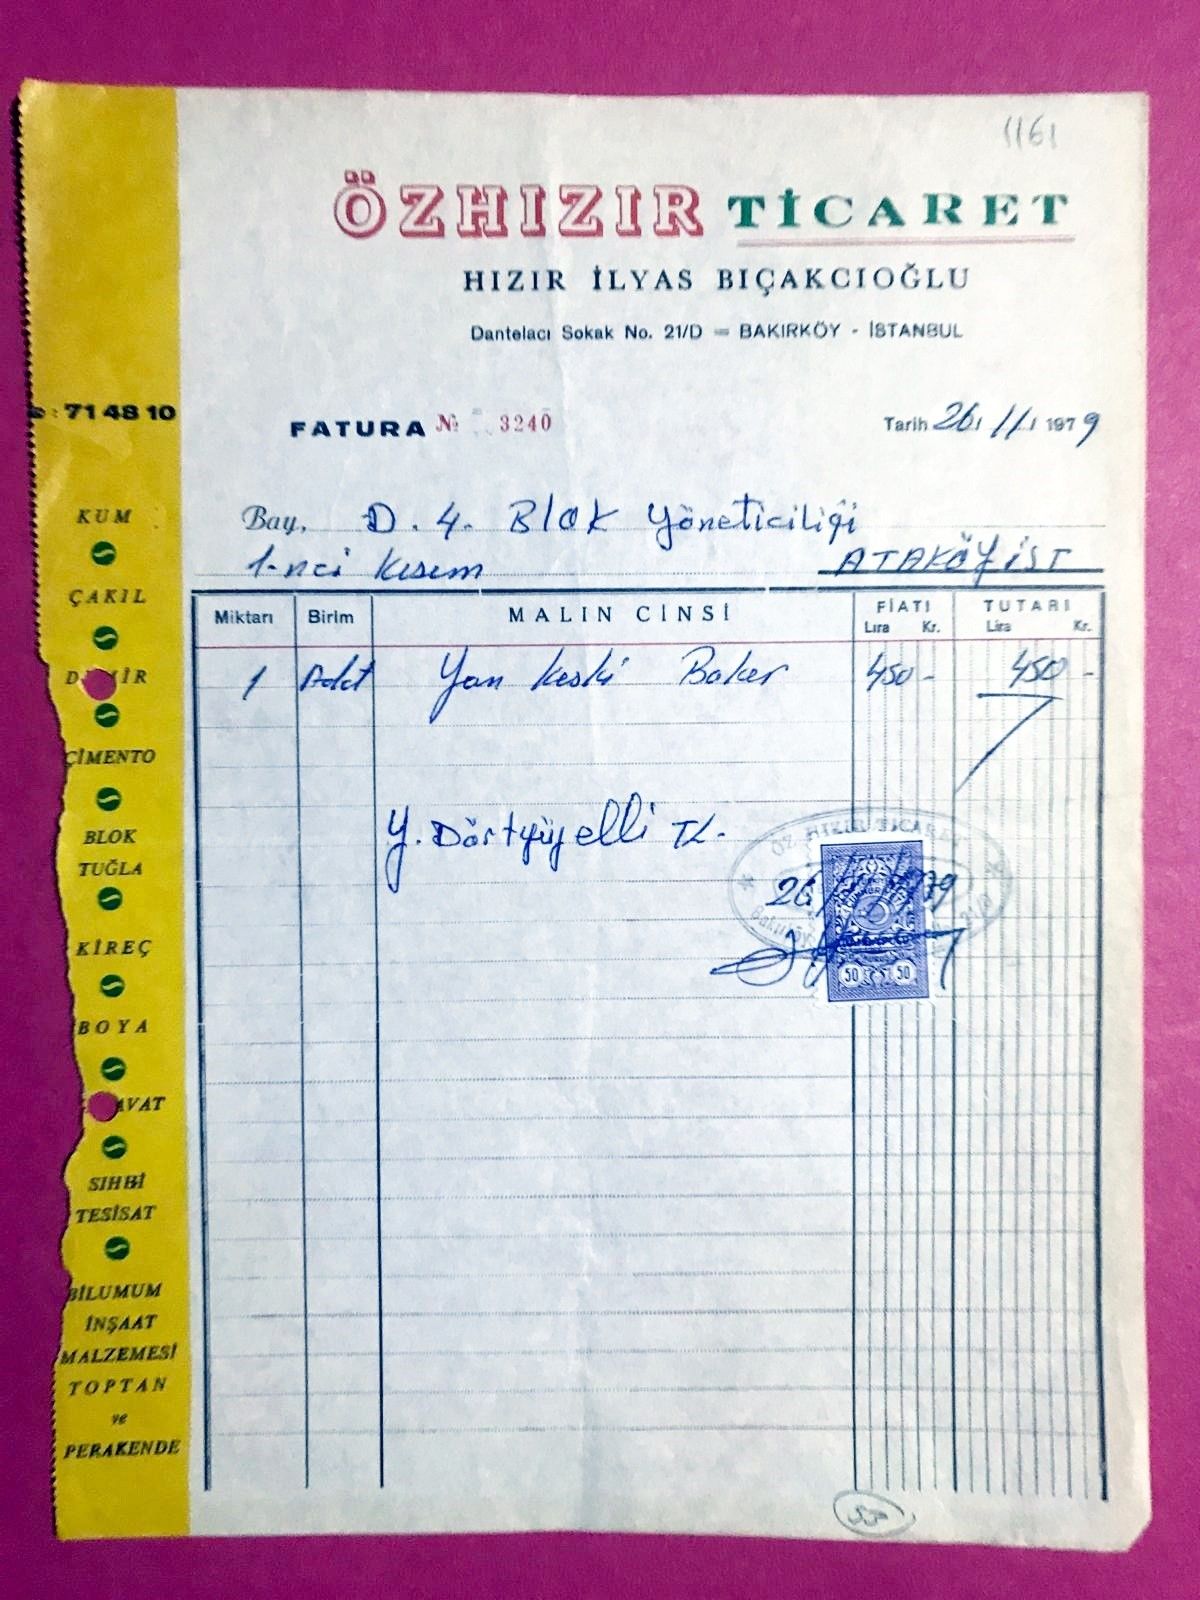 1161
ÖZHIZIR TİCARET
HIZIR İLYAS BIÇAKCIOĞLU
Dantelacı Sokak No. 21/D = BAKIRKÖY - İSTANBUL
: 71 48 10
FATURA № 3240
Tarih 26/11/1979
Bay, D. 4. Blok Yöneticiliği
1-nci Kısım ATAKÖY İST
Miktarı Birim MALIN CİNSİ FİATI TUTARI
Lira Kr. Lira Kr.
1 Adet Yan keski Baker 450 - 450 -
Y. Dörtyüzelli TL.
ÖZ HIZIR TİCARET
26/11/979
50 50
KUM
ÇAKIL
DEMİR
ÇİMENTO
BLOK
TUĞLA
KİREÇ
BOYA
AVAT
SIHHİ
TESİSAT
BİLUMUM
İNŞAAT
MALZEMESİ
TOPTAN
ve
PERAKENDE